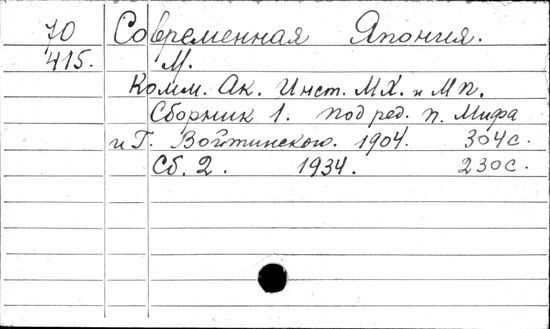 70 Современная Япония.
415. М.
Комм. Ак. Инст. МХ. и МП.
Сборник 1. под ред. П. Мифа
и Г. Войтинского. 1904. 304 с.
Сб. 2. 1934. 230 с.